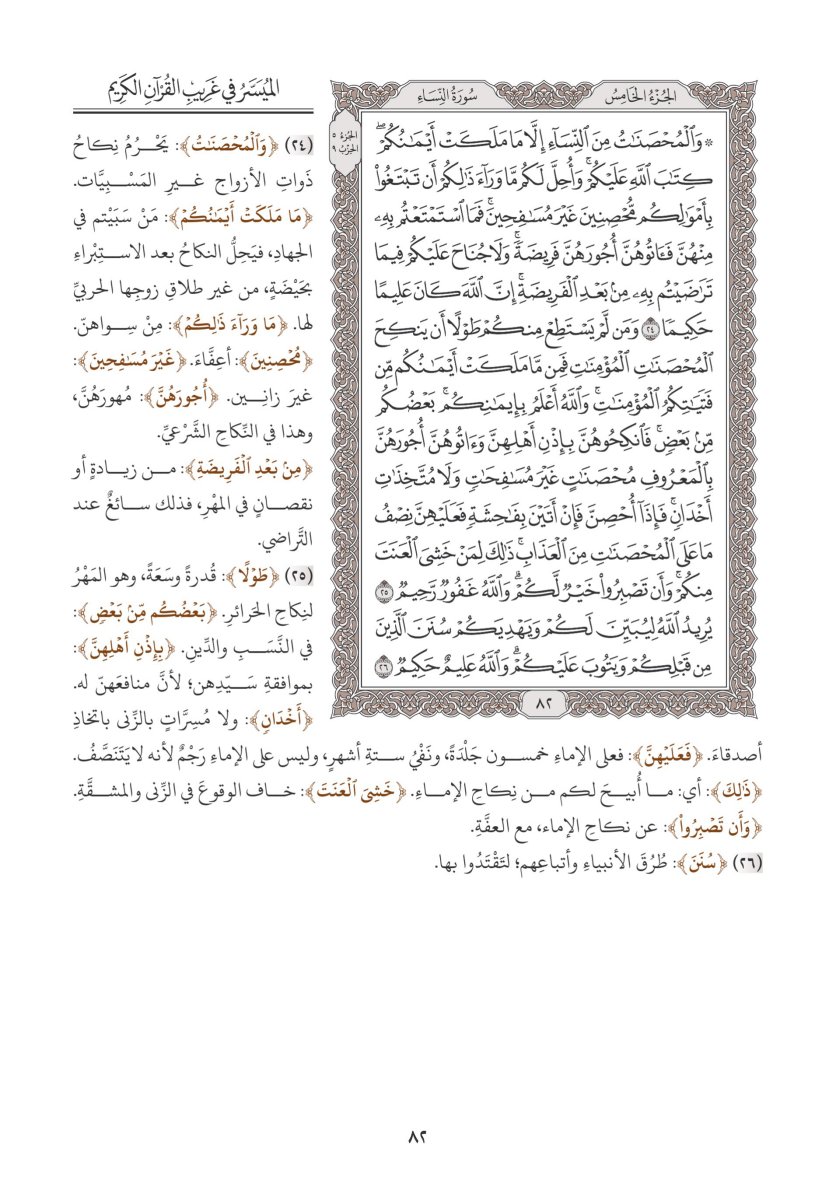 الميسر في غريب القرآن الكريم
الجزء الخامس
سورة النساء
الجزء ٥
الحزب ٩
* وَٱلْمُحْصَنَٰتُ مِنَ ٱلنِّسَآءِ إِلَّا مَا مَلَكَتْ أَيْمَٰنُكُمْۖ
كِتَٰبَ ٱللَّهِ عَلَيْكُمْۚ وَأُحِلَّ لَكُم مَّا وَرَآءَ ذَٰلِكُمْ أَن تَبْتَغُوا۟
بِأَمْوَٰلِكُم مُّحْصِنِينَ غَيْرَ مُسَٰفِحِينَۚ فَمَا ٱسْتَمْتَعْتُم بِهِۦ
مِنْهُنَّ فَـَٔاتُوهُنَّ أُجُورَهُنَّ فَرِيضَةًۚ وَلَا جُنَاحَ عَلَيْكُمْ فِيمَا
تَرَٰضَيْتُم بِهِۦ مِنۢ بَعْدِ ٱلْفَرِيضَةِۚ إِنَّ ٱللَّهَ كَانَ عَلِيمًا
حَكِيمًا ٢٤ وَمَن لَّمْ يَسْتَطِعْ مِنكُمْ طَوْلًا أَن يَنكِحَ
ٱلْمُحْصَنَٰتِ ٱلْمُؤْمِنَٰتِ فَمِن مَّا مَلَكَتْ أَيْمَٰنُكُم مِّن
فَتَيَٰتِكُمُ ٱلْمُؤْمِنَٰتِۚ وَٱللَّهُ أَعْلَمُ بِإِيمَٰنِكُمۚ بَعْضُكُم
مِّنۢ بَعْضٍۚ فَٱنكِحُوهُنَّ بِإِذْنِ أَهْلِهِنَّ وَءَاتُوهُنَّ أُجُورَهُنَّ
بِٱلْمَعْرُوفِ مُحْصَنَٰتٍ غَيْرَ مُسَٰفِحَٰتٍ وَلَا مُتَّخِذَٰتِ
أَخْدَانٍۚ فَإِذَآ أُحْصِنَّ فَإِنْ أَتَيْنَ بِفَٰحِشَةٍ فَعَلَيْهِنَّ نِصْفُ
مَا عَلَى ٱلْمُحْصَنَٰتِ مِنَ ٱلْعَذَابِۚ ذَٰلِكَ لِمَنْ خَشِىَ ٱلْعَنَتَ
مِنكُمْۚ وَأَن تَصْبِرُوا۟ خَيْرٌ لَّكُمْۗ وَٱللَّهُ غَفُورٌ رَّحِيمٌ ٢٥
يُرِيدُ ٱللَّهُ لِيُبَيِّنَ لَكُمْ وَيَهْدِيَكُمْ سُنَنَ ٱلَّذِينَ
مِن قَبْلِكُمْ وَيَتُوبَ عَلَيْكُمْۗ وَٱللَّهُ عَلِيمٌ حَكِيمٌ ٢٦
٨٢
(٢٤) ﴿وَٱلْمُحْصَنَٰتُ﴾: يَحْرُمُ نِكاحُ
ذَواتِ الأزواجِ غيرِ المَسْبِيَّات.
﴿مَا مَلَكَتْ أَيْمَٰنُكُمْ﴾: مَنْ سَبَيْتم في
الجهادِ، فيَحِلُّ النكاحُ بعد الاستِبْراءِ
بحَيْضَةٍ، من غير طلاقِ زوجِها الحربيِّ
لها. ﴿مَا وَرَآءَ ذَٰلِكُمْ﴾: مِنْ سِواهنّ.
﴿مُّحْصِنِينَ﴾: أعِفَّاءَ. ﴿غَيْرَ مُسَٰفِحِينَ﴾:
غيرَ زانِين. ﴿أُجُورَهُنَّ﴾: مُهورَهُنَّ،
وهذا في النِّكاحِ الشَّرْعيِّ.
﴿مِنۢ بَعْدِ ٱلْفَرِيضَةِ﴾: من زيادةٍ أو
نقصانٍ في المهْرِ، فذلك سائغٌ عند
التَّراضي.
(٢٥) ﴿طَوْلًا﴾: قُدرةً وسَعَةً، وهو المَهْرُ
لنِكاحِ الحَرائرِ. ﴿بَعْضُكُم مِّنۢ بَعْضٍ﴾:
في النَّسَبِ والدِّينِ. ﴿بِإِذْنِ أَهْلِهِنَّ﴾:
بموافقةِ سَيّدِهن؛ لأنَّ منافعَهنّ له.
﴿أَخْدَانٍ﴾: ولا مُسِرَّاتٍ بالزِّنى باتخاذِ
أصدقاءَ. ﴿فَعَلَيْهِنَّ﴾: فعلى الإماءِ خمسون جَلْدَةً، ونَفْيُ ستةِ أشهرٍ، وليس على الإماءِ رَجْمٌ لأنه لا يَتَنَصَّفُ.
﴿ذَٰلِكَ﴾: أي: ما أُبيحَ لكم من نِكاحِ الإماءِ. ﴿خَشِىَ ٱلْعَنَتَ﴾: خاف الوقوعَ في الزِّنى والمشقَّةِ.
﴿وَأَن تَصْبِرُوا۟﴾: عن نكاحِ الإماء، مع العفَّةِ.
(٢٦) ﴿سُنَنَ﴾: طُرُقَ الأنبياءِ وأتباعِهم؛ لتَقْتَدُوا بها.
٨٢